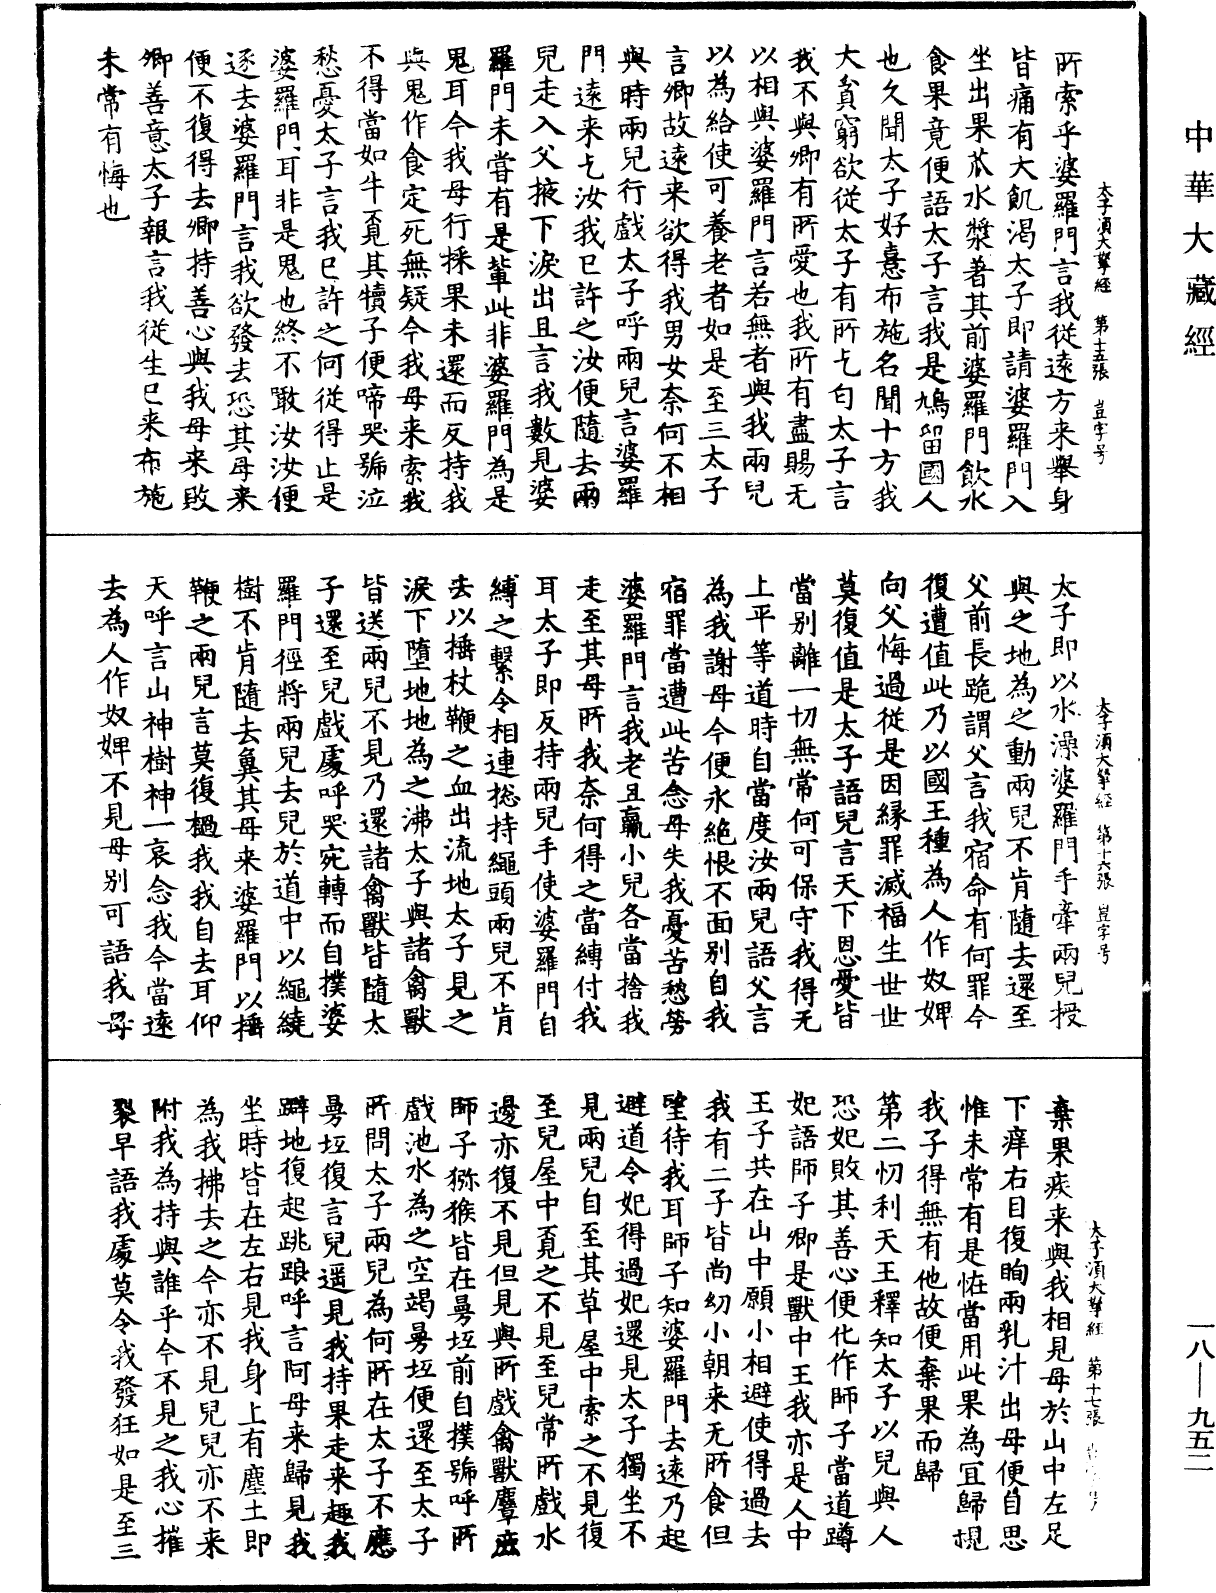 中華大藏經
太子須大拏經　第十五張　豈字号
所索乎婆羅門言我從遠方来舉身
皆痛有大飢渴太子即請婆羅門入
坐出果苽水漿著其前婆羅門飲水
食果竟便語太子言我是鳩留國人
也久聞太子好憙布施名聞十方我
大貧窮欲從太子有所乞匃太子言
我不與卿有所愛也我所有盡賜无
以相與婆羅門言若無者與我兩兒
以為給使可養老者如是至三太子
言卿故遠来欲得我男女奈何不相
與時兩兒行戲太子呼兩兒言婆羅
門遠来乞汝我已許之汝便隨去兩
兒走入父掖下淚出且言我數見婆
羅門未嘗有是輩此非婆羅門為是
鬼耳今我母行採果未還而反持我
與鬼作食定死無疑今我母来索我
不得當如牛覓其犢子便啼哭號泣
愁憂太子言我已許之何從得止是
婆羅門耳非是鬼也終不噉汝汝便
逐去婆羅門言我欲發去恐其母来
便不復得去卿持善心與我母来敗
卿善意太子報言我從生已来布施
未常有悔也
太子須大拏經　第十六張　豈字号
太子即以水澡婆羅門手牽兩兒授
與之地為之動兩兒不肯隨去還至
父前長跪謂父言我宿命有何罪今
復遭值此乃以國王種為人作奴婢
向父悔過從是因緣罪滅福生世世
莫復值是太子語兒言天下恩愛皆
當別離一切無常何可保守我得无
上平等道時自當度汝兩兒語父言
為我謝母今便永絕恨不面別自我
宿罪當遭此苦念母失我憂苦愁勞
婆羅門言我老且羸小兒各當捨我
走至其母所我奈何得之當縛付我
耳太子即反持兩兒手使婆羅門自
縛之繫令相連捴持繩頭兩兒不肯
去以捶杖鞭之血出流地太子見之
淚下墮地地為之沸太子與諸禽獸
皆送兩兒不見乃還諸禽獸皆隨太
子還至兒戲處呼哭宛轉而自撲婆
羅門徑將兩兒去兒於道中以繩繞
樹不肯隨去兾其母来婆羅門以捶
鞭之兩兒言莫復撾我我自去耳仰
天呼言山神樹神一哀念我今當遠
去為人作奴婢不見母別可語我母
太子須大拏經　第十七張
棄果疾来與我相見母於山中左足
下痒右目復瞤兩乳汁出母便自思
惟未常有是恠當用此果為冝歸視
我子得無有他故便棄果而歸
第二忉利天王釋知太子以兒與人
恐妃敗其善心便化作師子當道蹲
妃語師子卿是獸中王我亦是人中
王子共在山中願小相避使得過去
我有二子皆尚幼小朝来无所食但
望待我耳師子知婆羅門去遠乃起
避道令妃得過妃還見太子獨坐不
見兩兒自至其草屋中索之不見復
至兒屋中覓之不見至兒常所戲水
邊亦復不見但見與所戲禽獸麞鹿
師子獼猴皆在曼坻前自撲號呼所
戲池水為之空竭曼坻便還至太子
所問太子兩兒為何所在太子不應
曼坻復言兒遥見我持果走来趣我
躃地復起跳踉呼言阿母来歸見我
坐時皆在左右見我身上有塵土即
為我拂去之今亦不見兒兒亦不来
附我為持與誰乎今不見之我心摧
裂早語我處莫令我發狂如是至三
一八—九五二